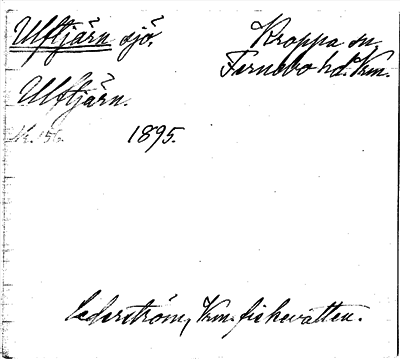 Ulftjärn sjö.
Kroppa sn,
Fernebo hd. Vrm.
Ulftjärn.
Nr. 156. 1895.
Cederström, Vrm. fiskevatten.